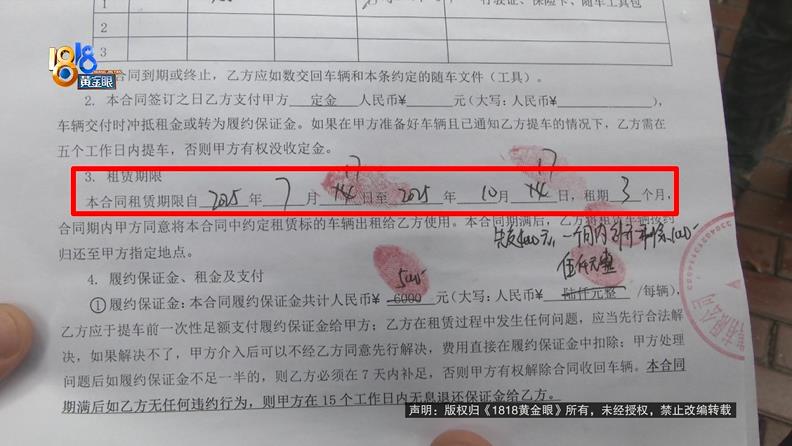 1 行驶证、保险卡、随车工具包
2
3
1818
黄金眼
合同到期或终止，乙方应如数交回车辆和本条约定的随车文件（工具）。
2. 本合同签订之日乙方支付甲方 定金 人民币¥ 元（大写：人民币 ），
车辆交付时冲抵租金或转为履约保证金。如果在甲方准备好车辆且已通知乙方提车的情况下，乙方需在
五个工作日内提车，否则甲方有权没收定金。
17 17
3. 租赁期限
本合同租赁期限自 2025 年 7 月 14 日至 2025 年 10 月 14 日，租期 3 个月，
合同期内甲方同意将本合同中约定租赁标的车辆出租给乙方使用。本合同期满后，乙方将租赁车辆按约
归还至甲方指定地点。
伍仟元整
4. 履约保证金、租金及支付
5000
①履约保证金：本合同履约保证金共计人民币¥ 6000 元（大写：人民币 陆仟元整 /每辆），
乙方应于提车前一次性足额支付履约保证金给甲方；乙方在租赁过程中发生任何问题，应当先行合法解
决，如果解决不了，甲方介入后可以不经乙方同意先行解决，费用直接在履约保证金中扣除；甲方处理
问题后如履约保证金不足一半的，则乙方必须在 7 天内补足，否则甲方有权解除合同收回车辆。本合同
期满后如乙方无任何违约行为，则甲方在 15 个工作日内无息退还保证金给乙方。
声明：版权归《1818黄金眼》所有，未经授权，禁止改编转载